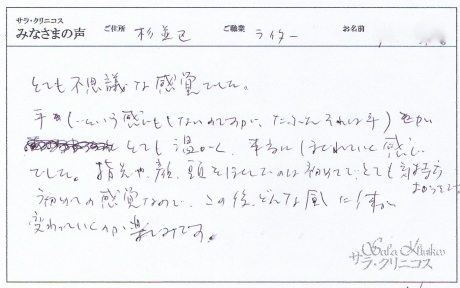 サラ・クリニコス
みなさまの声 ご住所 杉並区 ご職業 ライター お名前
とても不思議な感覚でした。
手(…という感じもしないのですが、たぶんそれは手)
とても温かく、本当にほぐれていく感じ
でした。指先や、顔、頭をほぐしたのは初めてで、とても気持ち
よかったです
初めての感覚なので、この後、どんな風に体が
変わっていくのか楽しみです。
Sala Klinikos
サラ・クリニコス